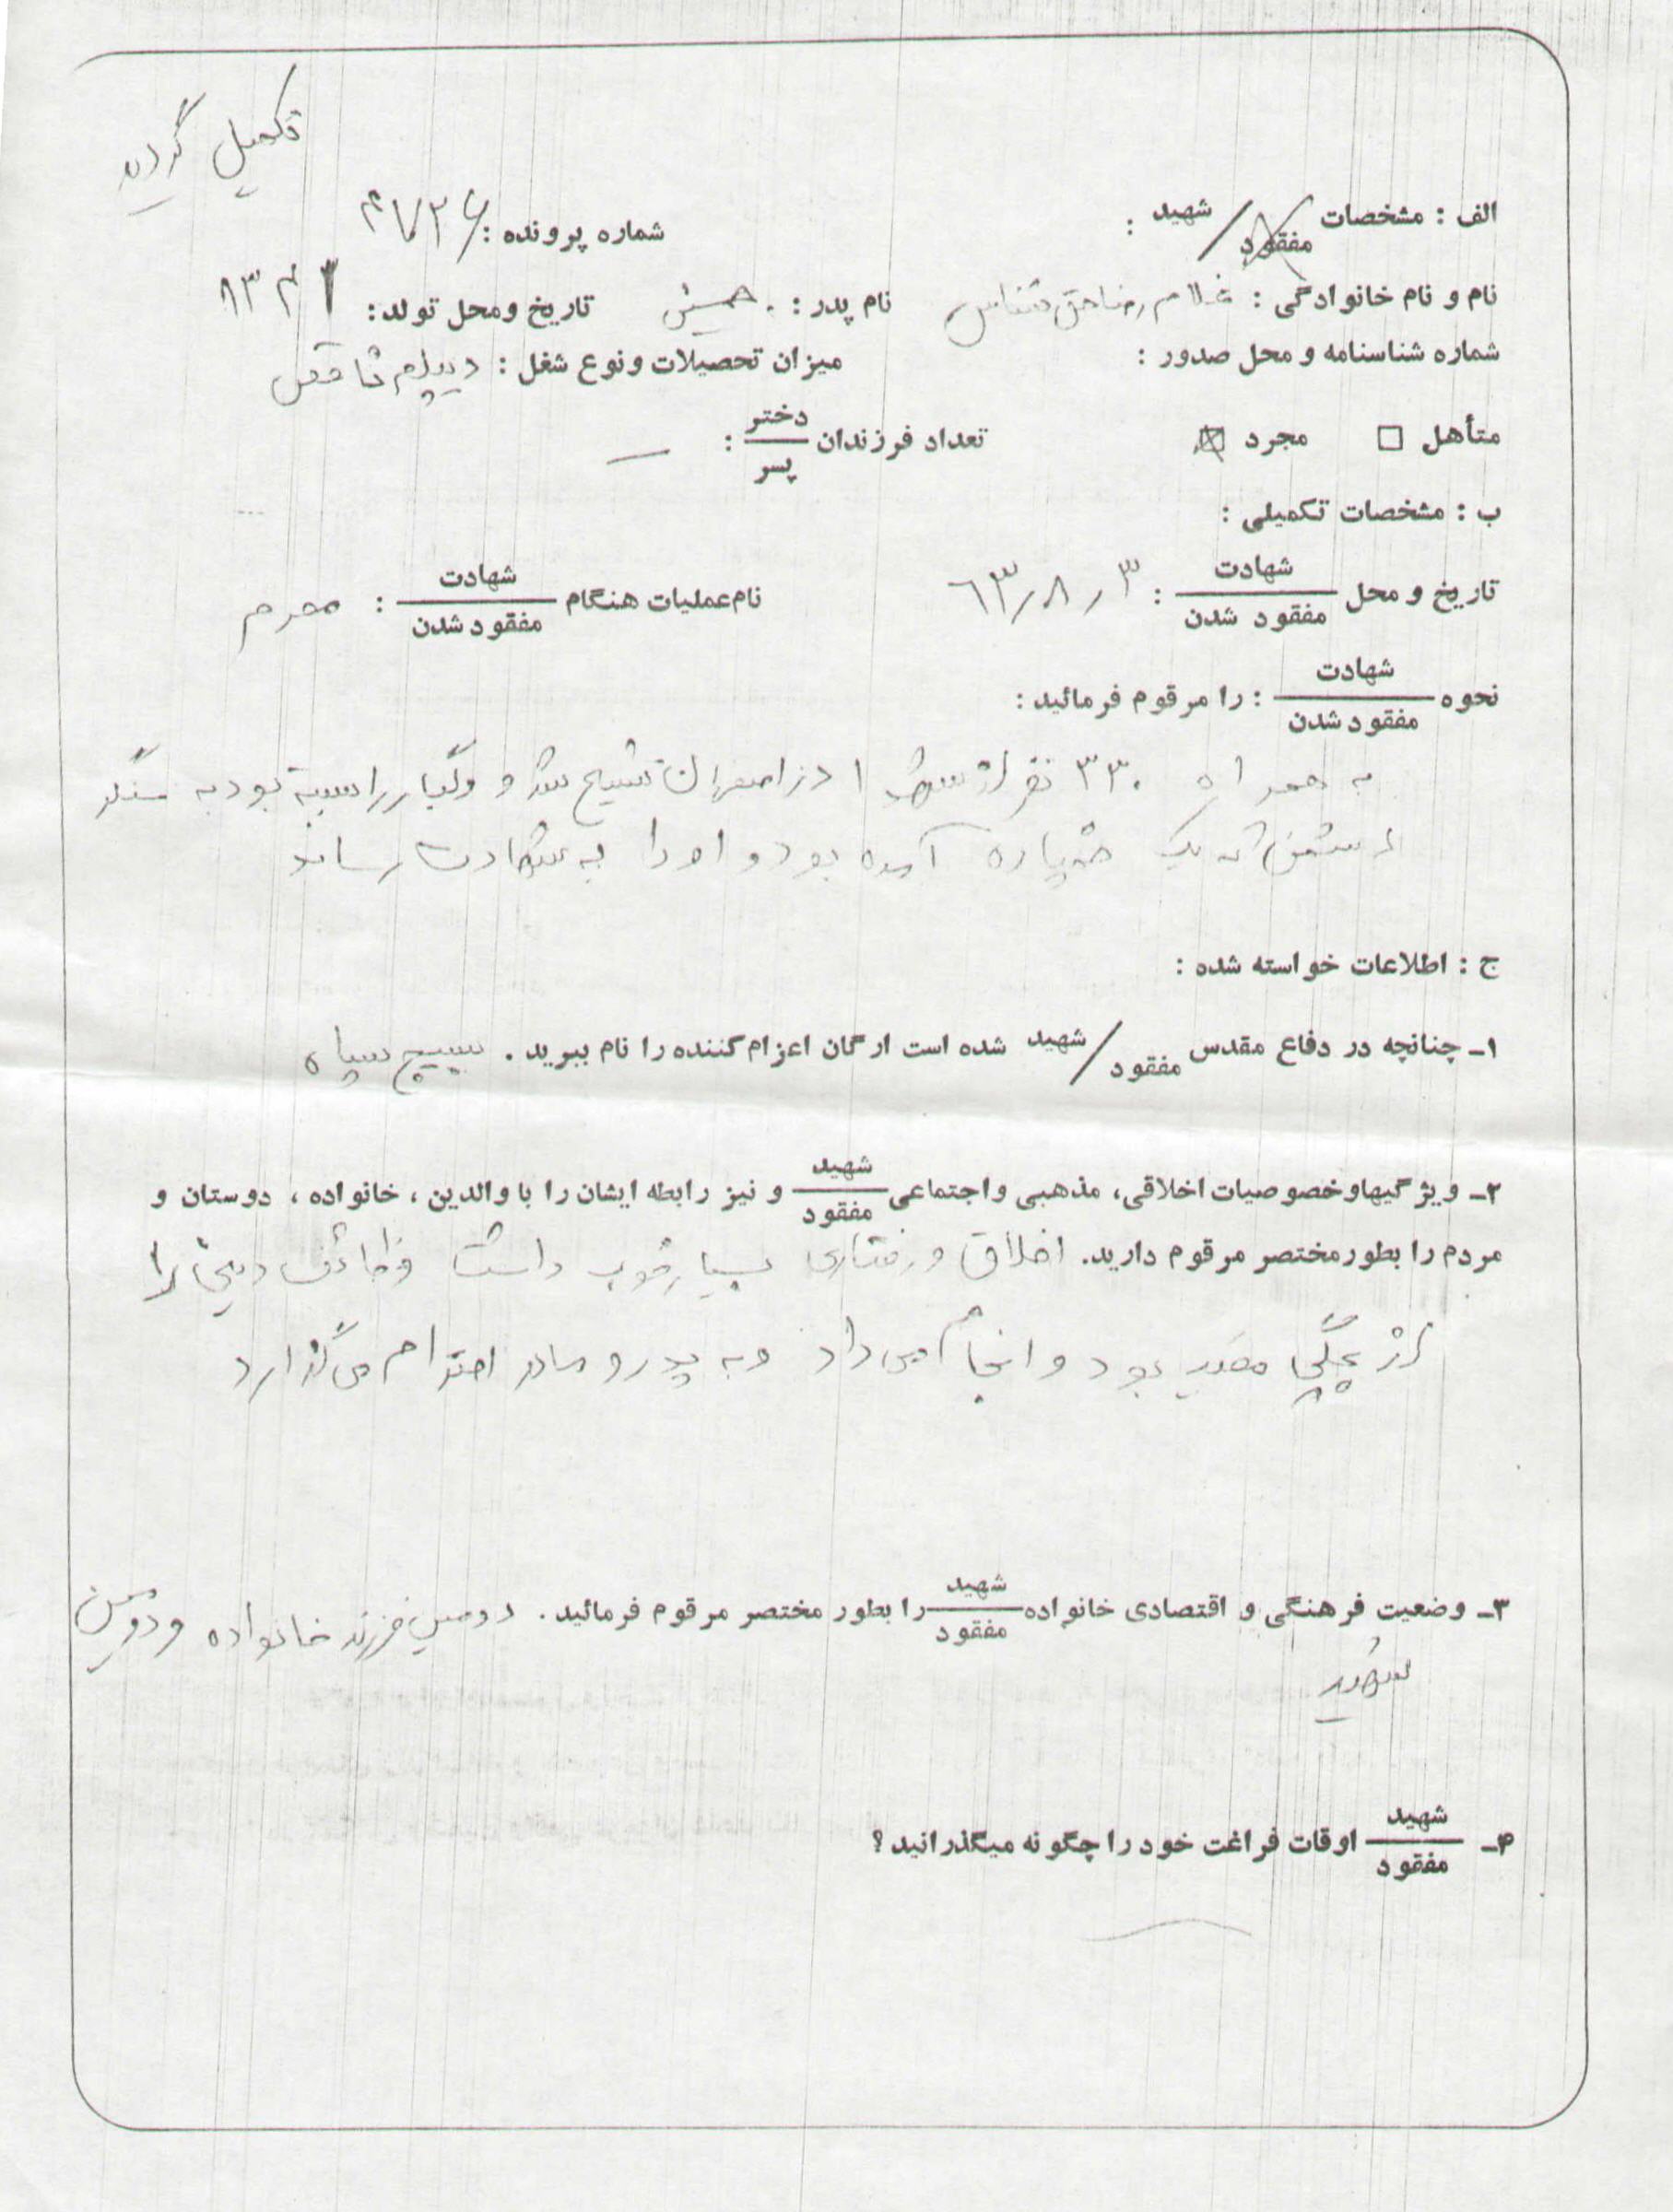 تکمیل گردید
الف : مشخصات شهید / مفقود :
شماره پرونده :
نام و نام خانوادگی : غلامرضا حق شناس نام پدر : حسین تاریخ ومحل تولد :
شماره شناسنامه و محل صدور : میزان تحصیلات ونوع شغل : دیپلم ناقص
متأهل □ مجرد ☒ تعداد فرزندان دختر / پسر : —
ب : مشخصات تکمیلی :
تاریخ و محل شهادت / مفقود شدن : ۶۳٫۸٫۳ نام عملیات هنگام شهادت / مفقود شدن : محرم
نحوه شهادت / مفقود شدن : را مرقوم فرمائید :
به همراه ۳۳۰ نفر از شهدا در اصفهان تشییع شد و رگبار را بسته بود به سنگر
دشمن که یک خمپاره آمده بود و او را به شهادت رساند
ج : اطلاعات خواسته شده :
۱ـ چنانچه در دفاع مقدس شهید / مفقود شده است ارگان اعزام کننده را نام ببرید . بسیج سپاه
۲ـ ویژگیهاوخصوصیات اخلاقی، مذهبی واجتماعی شهید / مفقود و نیز رابطه ایشان را با والدین ، خانواده ، دوستان و
مردم را بطور مختصر مرقوم دارید. اخلاق و رفتاری بسیار خوب داشت وظائف دینی را
از بچگی مقید بود و انجام می داد و به پدر و مادر احترام می گذارد
۳ـ وضعیت فرهنگی و اقتصادی خانواده شهید / مفقود را بطور مختصر مرقوم فرمائید . دومین فرزند خانواده و دومین
شهید
۴ـ شهید / مفقود اوقات فراغت خود را چگونه میگذرانید ؟